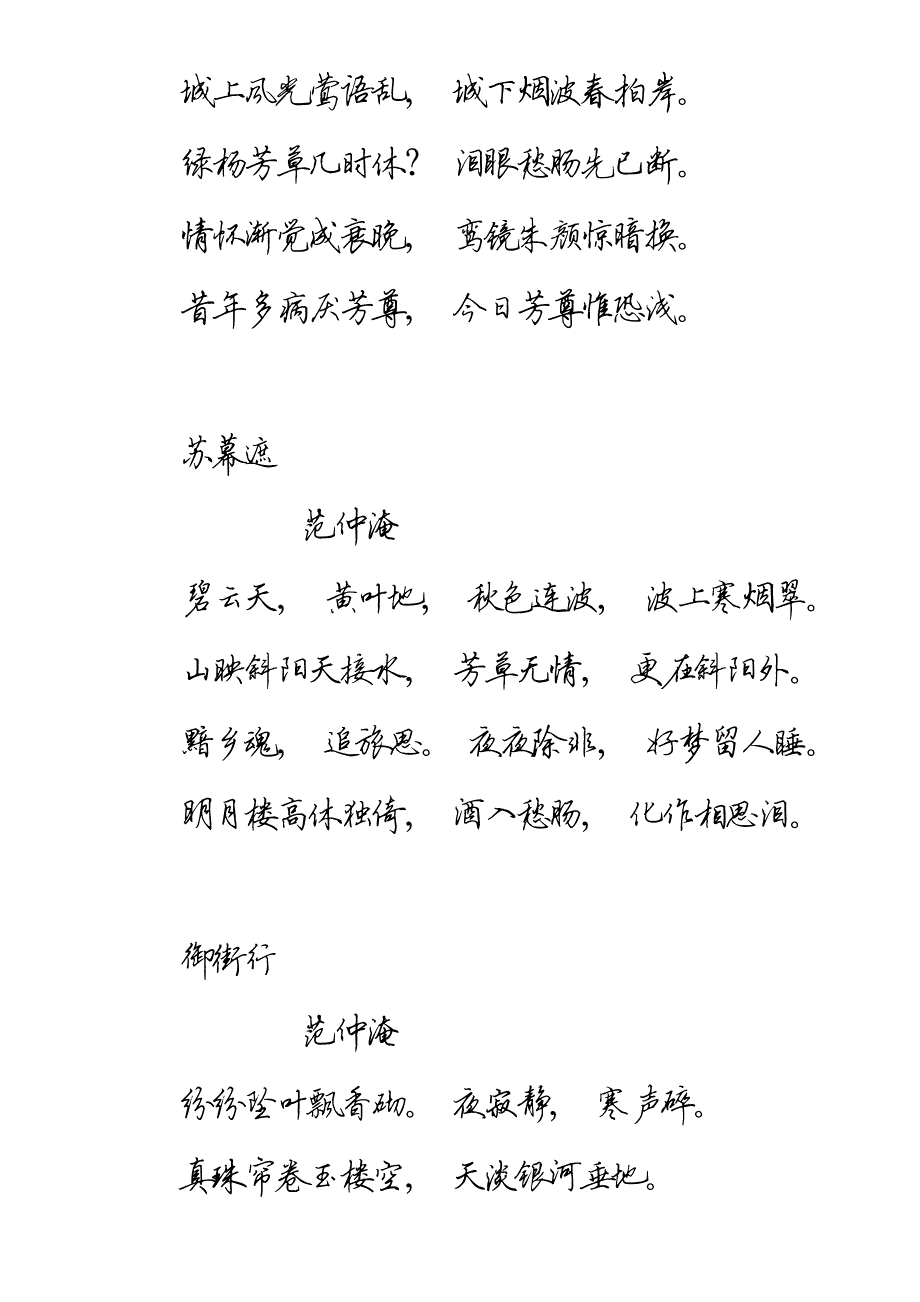 城上风光莺语乱， 城下烟波春拍岸。
绿杨芳草几时休？ 泪眼愁肠先已断。
情怀渐觉成衰晚， 鸾镜朱颜惊暗换。
昔年多病厌芳尊， 今日芳尊惟恐浅。
苏幕遮
范仲淹
碧云天， 黄叶地， 秋色连波， 波上寒烟翠。
山映斜阳天接水， 芳草无情， 更在斜阳外。
黯乡魂， 追旅思。 夜夜除非， 好梦留人睡。
明月楼高休独倚， 酒入愁肠， 化作相思泪。
御街行
范仲淹
纷纷坠叶飘香砌。 夜寂静， 寒声碎。
真珠帘卷玉楼空， 天淡银河垂地。